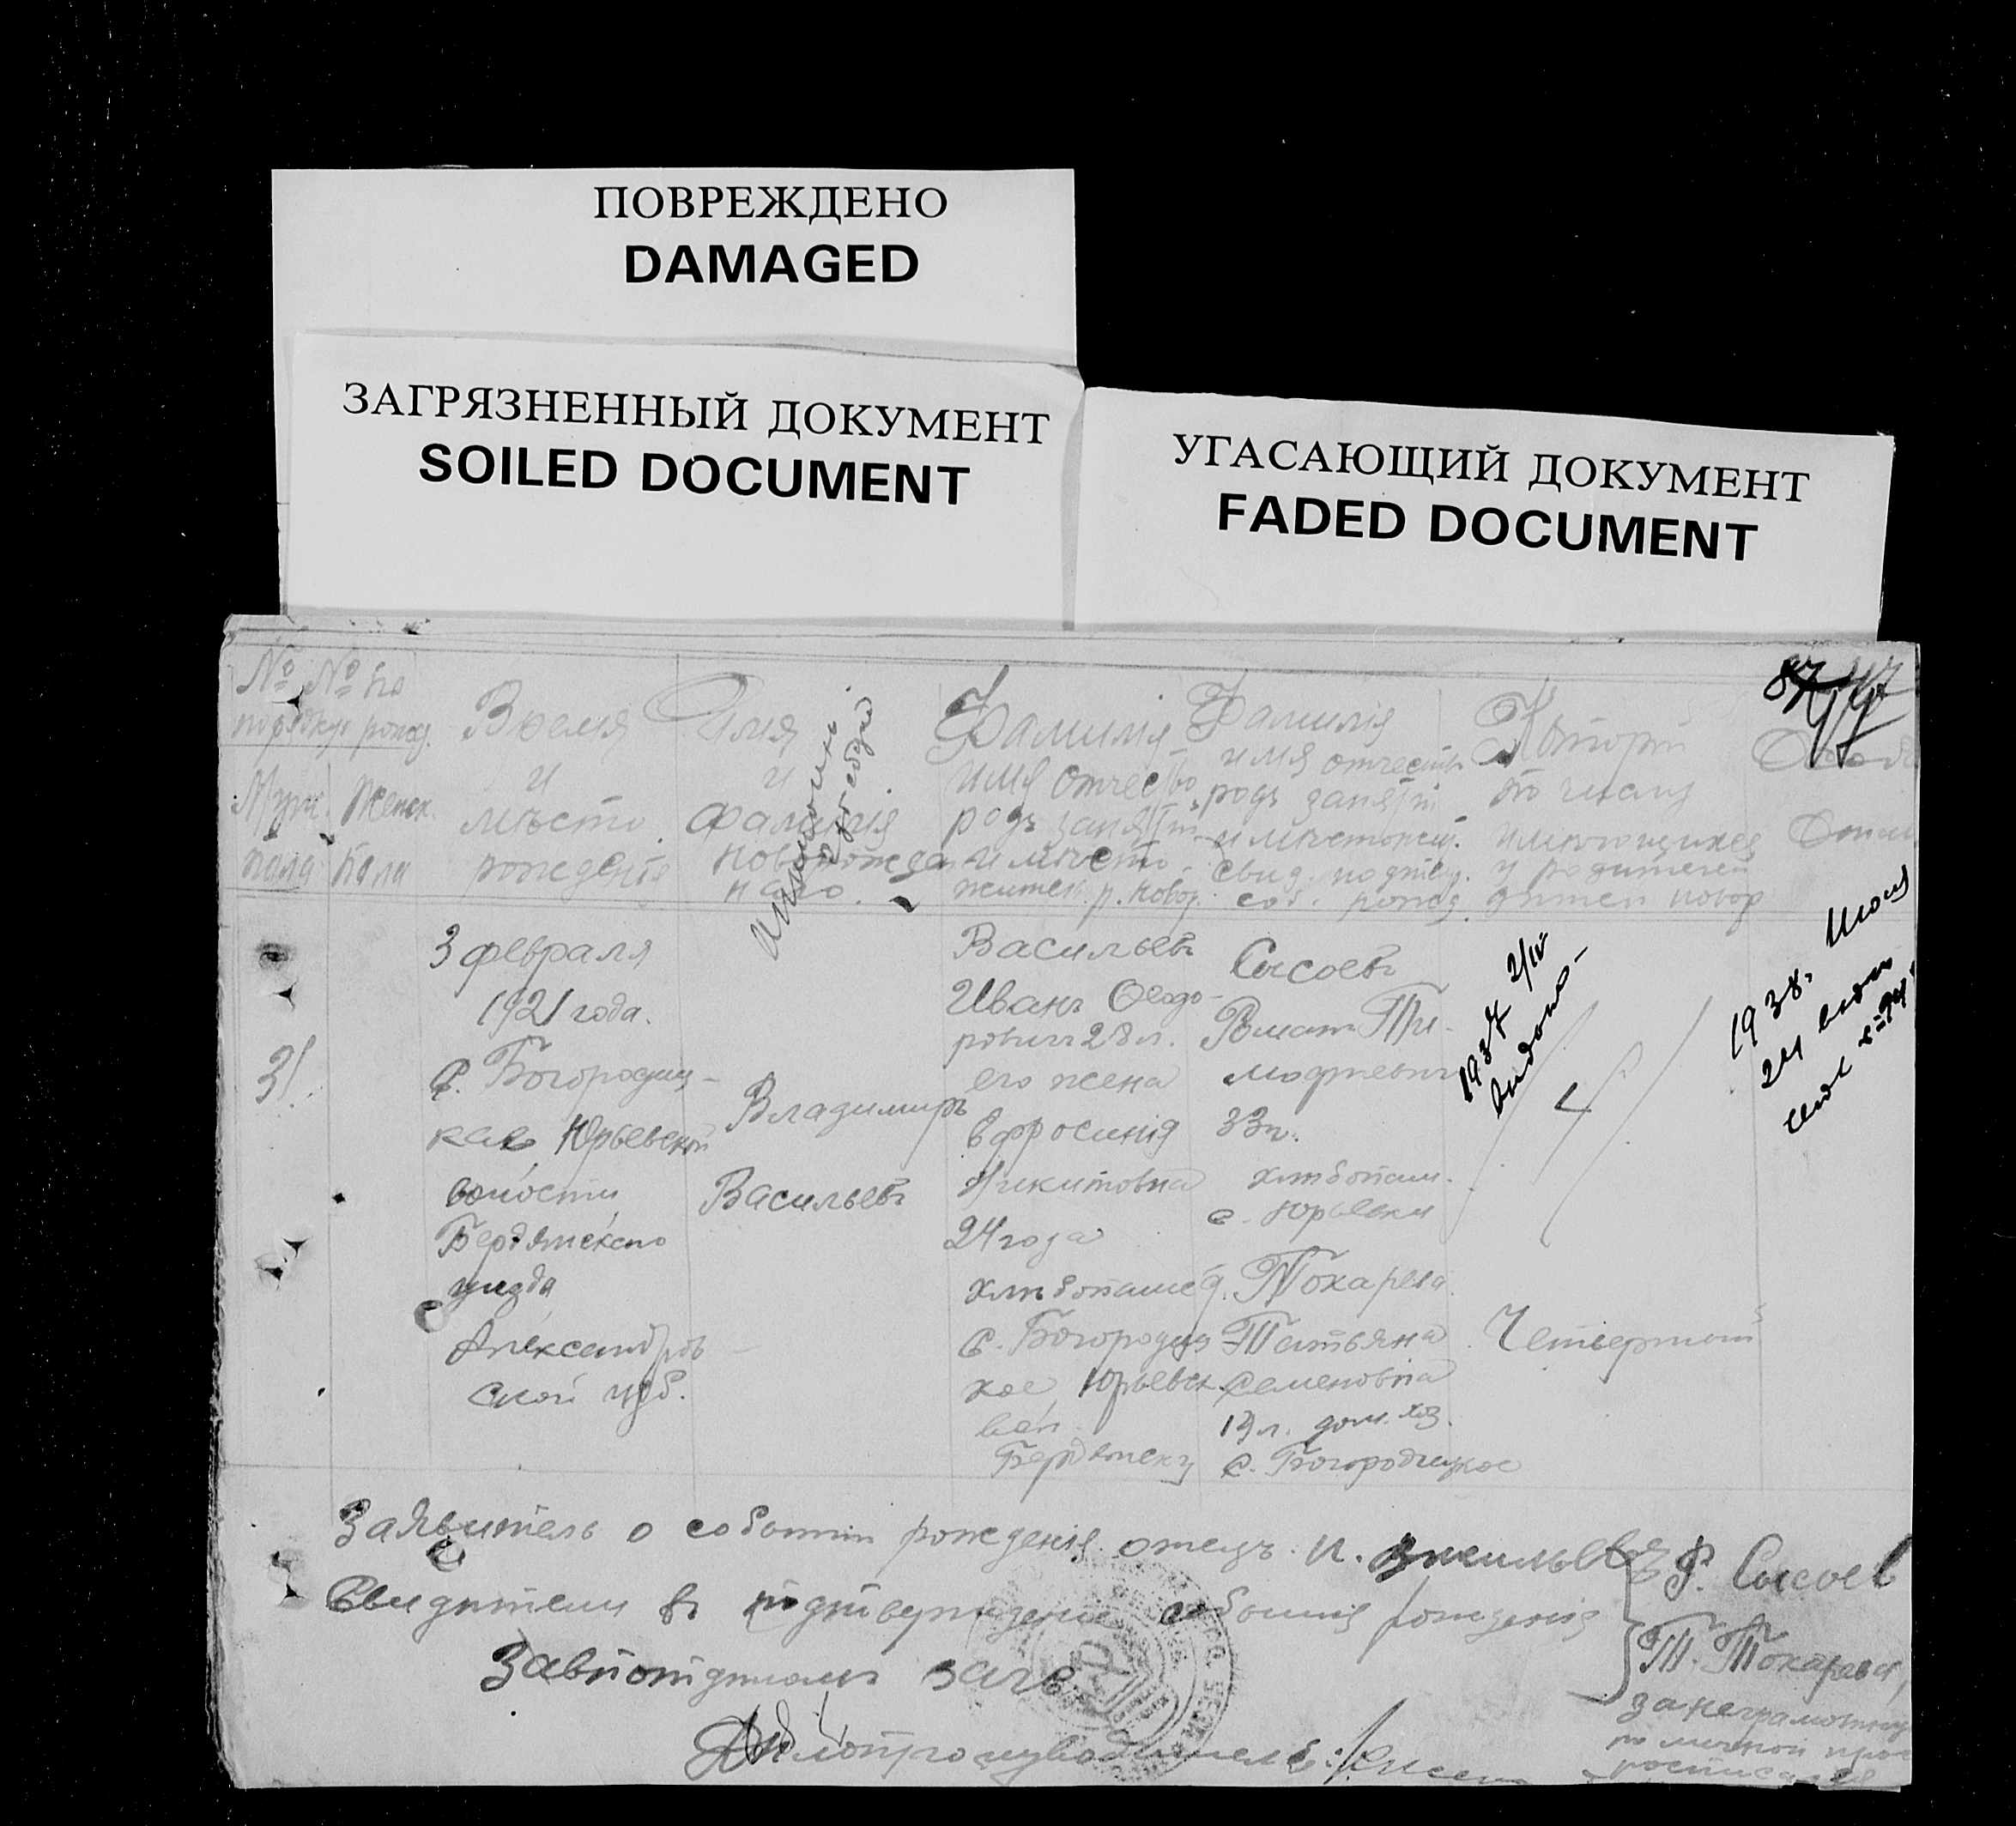 ПОВРЕЖДЕНО
DAMAGED
ЗАГРЯЗНЕННЫЙ ДОКУМЕНТ
SOILED DOCUMENT
УГАСАЮЩИЙ ДОКУМЕНТ
FADED DOCUMENT
№ № по
рожд.
Мужс. Женск.
пола пола
Время
и
мѣсто
рожденія
Имя
и
фамилія
новорожден
наго.
Фамилія
имя отчество
родъ занятій
и мѣсто
жител. р. новор.
Фамилія
имя отчеств
родъ занятій
и мѣстожит.
свид. подтв.
соб. рожд.
Которы
по числу
имеющихся
у родителей
дѣтей новор
31.
3 февраля
1921 года.
с. Богородиц-
кое Юрьевской
волости
Бердянскаго
уезда
Александров
ской губ.
Владимиръ
Васильевъ
Васильевъ
Иванъ Феодо-
ровичъ 28 л.
его жена
Ефросинія
Никитовна
24 года
хлѣбопашец
с. Богородиц
кое, Юрьевск.
вол.
Бердянску
Сысоевъ
33 г.
хлѣбопаш.
с. Юрьевки
Токарева
Татьяна
Семеновна
19 л. дом. хоз.
с. Богородицкое
4
Четвертый
1937 2/IV
1938.
Заявитель о событіи рожденія отецъ И. Васильевъ
Свидѣтели въ подтвержденіе событія рожденія
Ф. Сысоев
Т. Токарева,
за неграмотну
по личной прос
росписался
Завподотдѣломъ загс
Дѣлопроизводитель: